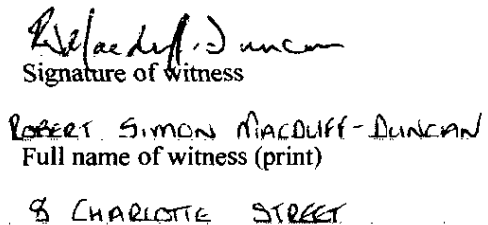 Signature of witness
ROBERT SIMON MACDUFF-DUNCAN
Full name of witness (print)
8 CHARLOTTE STREET